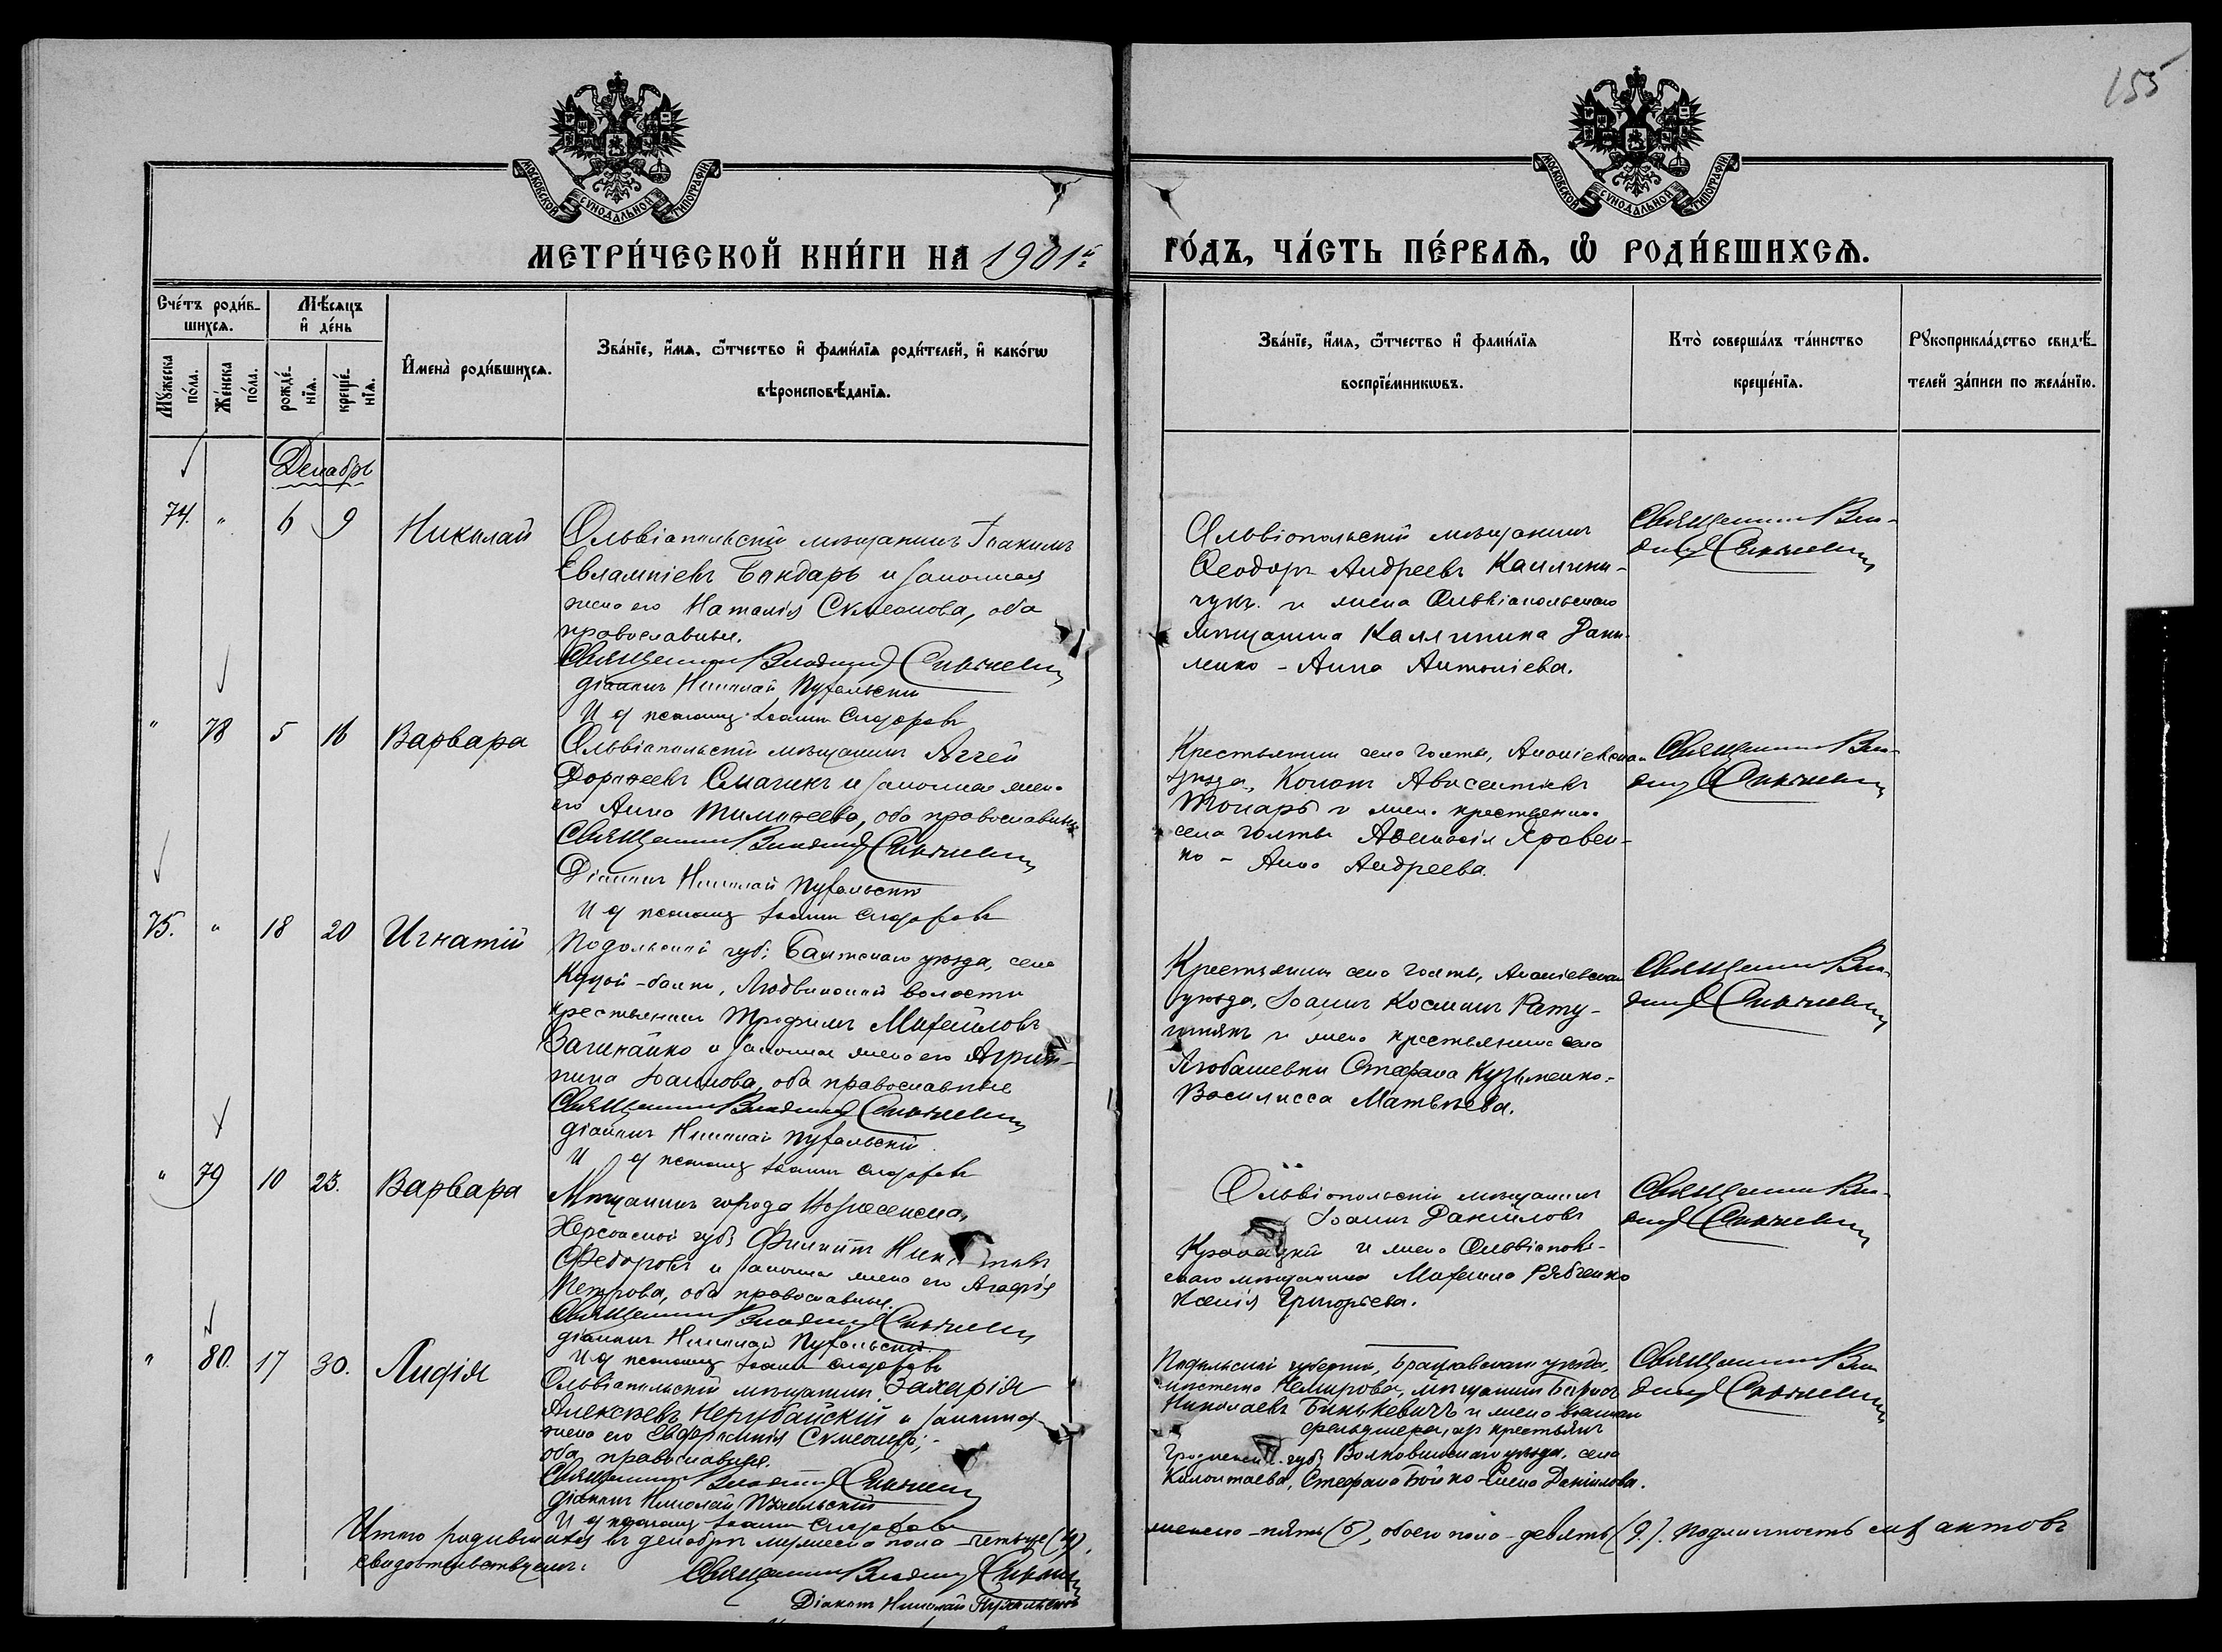 155
МОСКОВСКОЙ СУНОДАЛЬНОЙ ТИПОГРАФІИ
МОСКОВСКОЙ СУНОДАЛЬНОЙ ТИПОГРАФІИ
МЕТРИ́ЧЕСКОЙ КНИ́ГИ НА 1901й
ГО́ДЪ, ЧА́СТЬ ПЕ́РВАѦ, Ѡ҆ РОДИ́ВШИХСѦ.
Сче́тъ роди́в-
шихсѧ.
Мѣ́сѧцъ
и҆ де́нь
Мꙋ́жеска
по́ла.
Же́нска
по́ла.
рожде́-
нїѧ.
креще́-
нїѧ.
И҆мена̀ роди́вшихсѧ.
Зва́нїе, и҆́мѧ, ѻ҆́тчество и҆ фами́лїѧ роди́телей, и҆ како́гѡ
вѣроисповѣ́данїѧ.
Зва́нїе, и҆́мѧ, ѻ҆́тчество и҆ фами́лїѧ
воспрїе́мникѡвъ.
Кто̀ соверша́лъ та́инство
креще́нїѧ.
Рꙋкоприкла́дство свидѣ́-
телей за́писи по жела́нїю.
Декабрь
74. " 6 9 Николай
Ольвіопольскій мѣщанинъ Іоакимъ
Евлампіевъ Бондарь и законная
жена его Наталія Симеонова, оба
православные.
Священникъ
Діаконъ Николай
И д псаломщ Іоаннъ Сидоровъ
Ольвіопольскій мѣщанинъ
Ѳеодоръ Андреевъ Калини-
чукъ и жена Ольвіопольскаго
мѣщанина Каллиника Дани-
ленко - Анна Антоніева.
Священникъ Вла-
диміръ
" 78 5 16 Варвара
Ольвіопольскій мѣщанинъ Аггей
Дороѳеевъ Смагинъ и законная жена
его Анна Тимоѳеева, оба православные
Священникъ
Діаконъ Николай
И д псаломщ Іоаннъ Сидоровъ
Крестьянинъ села Голты, Ананіевскаго
уѣзда, Кононъ Авксентіевъ
и жена крестьянина
села Голты Аѳанасія Яровен-
ко - Анна Андреева.
Священникъ Вла-
диміръ
75. " 18 20 Игнатій
Подольской губ. Балтскаго уѣзда, села
-балки, волости
крестьянинъ Трофимъ Михайловъ
и законная жена его Агрип-
пина Іоаннова, оба православные
Священникъ
Діаконъ Николай
И д псаломщ Іоаннъ Сидоровъ
Крестьянинъ села Голты, Ананіевскаго
уѣзда, Іоаннъ Косминъ Рату-
и жена крестьянина села
Любашевки Стефана Кузьменко -
Василисса Матвѣева.
Священникъ Вла-
диміръ
" 79 10 23. Варвара
Мѣщанинъ города Вознесенска,
Херсонской губ. Филиппъ
Ѳедоровъ и законная жена его Агафія
Петрова, оба православные.
Священникъ
Діаконъ Николай
И д псаломщ Іоаннъ Сидоровъ
Ольвіопольскій мѣщанинъ
Іоаннъ Даніиловъ
и жена Ольвіополь-
скаго мѣщанина Михаила Рябченко
Ксенія Григоріева.
Священникъ Вла-
диміръ
" 80. 17 30. Лидія
Ольвіопольскій мѣщанинъ Захарія
Алексѣевъ Нерубайскій и законная
жена его Евфросинія Симеонова,
оба православные.
Священникъ
Діаконъ Николай
И д псаломщ Іоаннъ Сидоровъ
Подольской губерніи, Брацлавскаго уѣзда,
мѣстечка Немирова, мѣщанинъ Борисъ
Николаевъ Бинькевичъ и жена
фельдшера, изъ крестьянъ
Гродненской губ. Волковыскаго уѣзда, села
Стефана Бойко - Елена Даніилова.
Священникъ Вла-
диміръ
Итого родившихся въ декабрѣ мужеска пола - четыре (4),
женска - пять (5), обоего пола - девять (9). Подлинность сихъ актовъ
свидѣтельствуемъ:
Священникъ
Діаконъ Николай